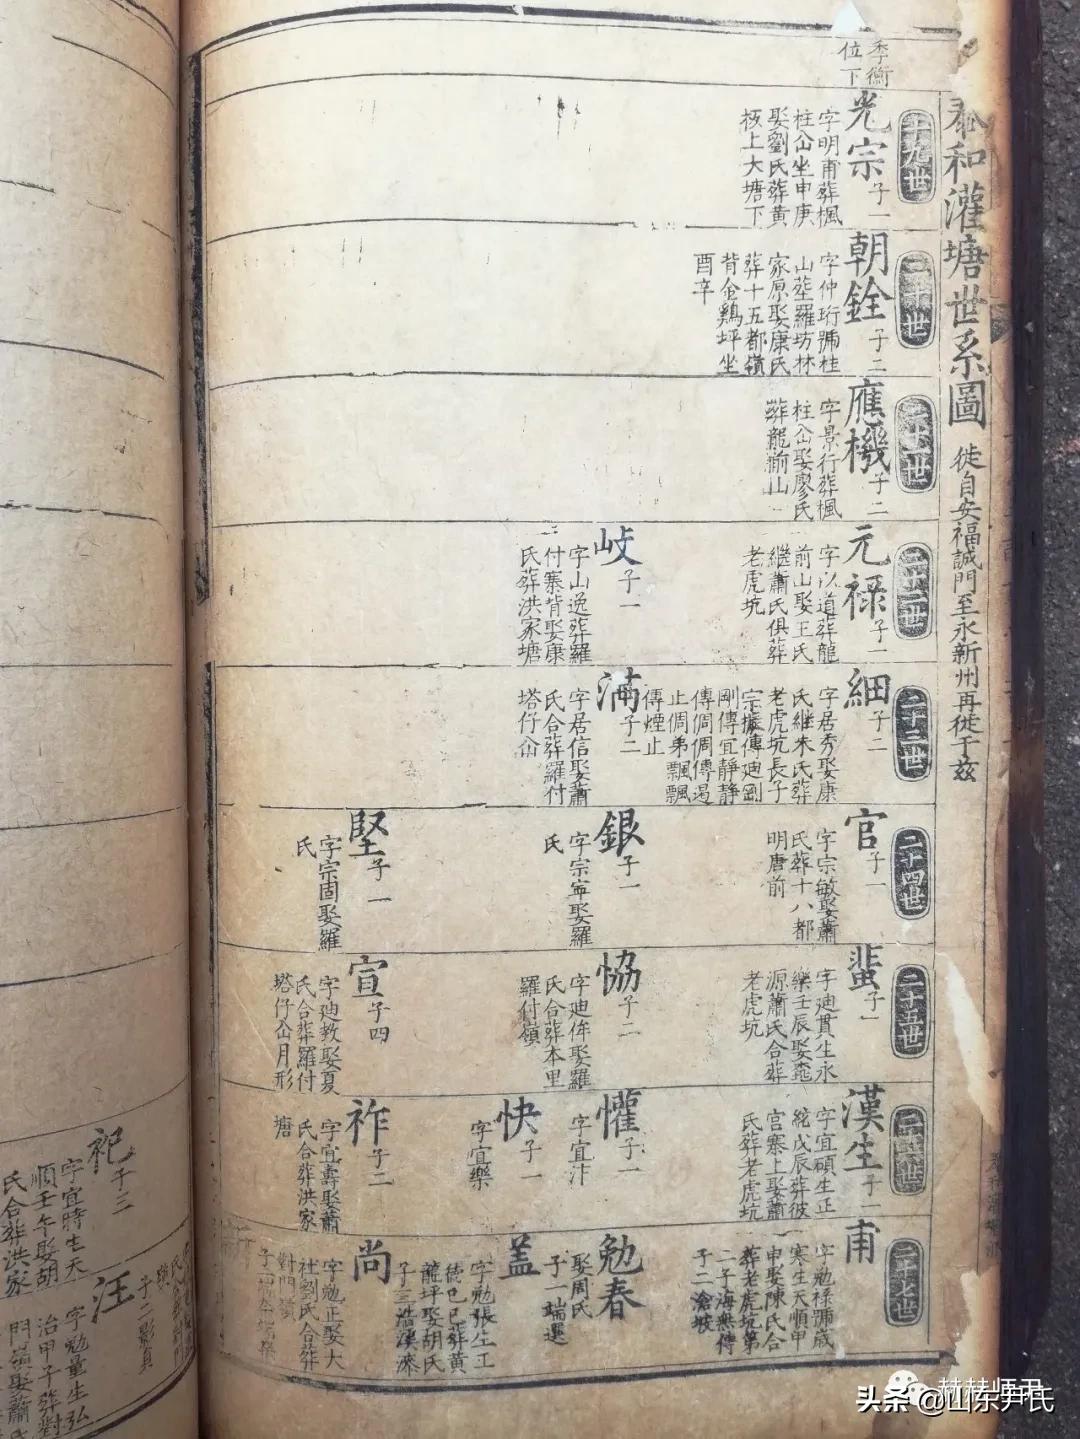 泰和灌塘世系圖 徙自安福誠門至永新州再徙于茲
季衡
位下
十九世
光宗 子一
字明甫葬楓
柱仚坐申庚
娶劉氏葬黄
极上大塘下
二十世
朝銓 子二
字仲珩號桂
山塟羅坊林
家原娶康氏
葬十五都嶺
背金鷄坪坐
酉辛
二十一世
應機 子二
字景行葬楓
柱仚娶廖氏
葬龍前山
二十二世
元禄 子二
字以道葬龍
前山娶王氏
継蕭氏俱葬
老虎坑
岐 子一
字山逸葬羅
付寨背娶康
氏葬洪家塘
二十三世
細 子二
字居秀娶康
氏継朱氏葬
老虎坑長子
宗振傳廸剛
剛傳宜靜靜
傳倜倜傳逷
止倜弟飄飄
傳煙止
滿 子二
字居信娶蕭
氏合葬羅付
塔仔仚
二十四世
官 子一
字宗敏娶蕭
氏葬十八都
明唐前
銀 子一
字宗寧娶羅
氏
堅 子一
字宗固娶羅
氏
二十五世
蜚 子一
字廸貫生永
樂壬辰娶
源蕭氏合葬
老虎坑
恊 子二
字廸侔娶羅
氏合葬本里
羅付嶺
宣 子四
字廸敎娶夏
氏合葬羅付
塔仔仚月形
二十六世
漢生 子一
字宜碩生正
統戊辰葬彼
官寨上娶蕭
氏葬老虎坑
懽 子一
字宜汴
快 子一
字宜樂
祚 子二
字宜壽娶蕭
氏合葬洪家
塘
二十七世
甫
字勉禄號歲
寒生天順甲
申娶陳氏合
葬老虎坑第
二子海無傳
子二滄坡
勉春
娶周氏
子一端選
盖
字勉張生正
德己巳葬黄
龍坪娶胡氏
子三浩溪漆
尚
字勉正娶大
社劉氏合葬
對門
祀 子三
字宜時生天
順壬午娶胡
氏合葬洪家
汪 子二影真
字勉量生弘
治甲子葬對
門嶺娶蕭氏
赫赫师尹
头条 @山东尹氏